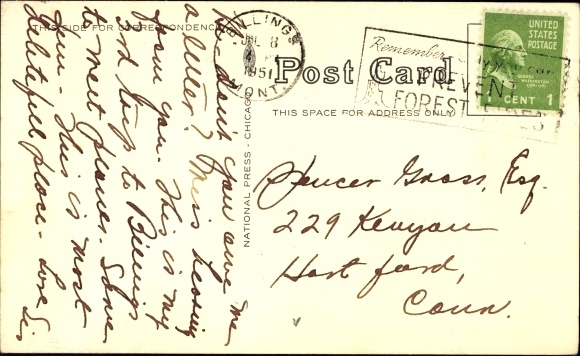 THIS SIDE FOR CORRESPONDENCE
Hi - don't you owe me
a letter? Miss hearing
from you. This is my
3rd trip to Billings
to meet planes. Some
fun. This is most
delightful place - Love Sis
NATIONAL PRESS - CHICAGO
BILLINGS
JUL 8
1951
MONT.
Remember
PREVENT
FOREST FIRES
UNITED
STATES
POSTAGE
GEORGE
WASHINGTON
1 CENT 1
Post Card
THIS SPACE FOR ADDRESS ONLY
Spencer Gross, Esq.
229 Kenyon
Hartford,
Conn.